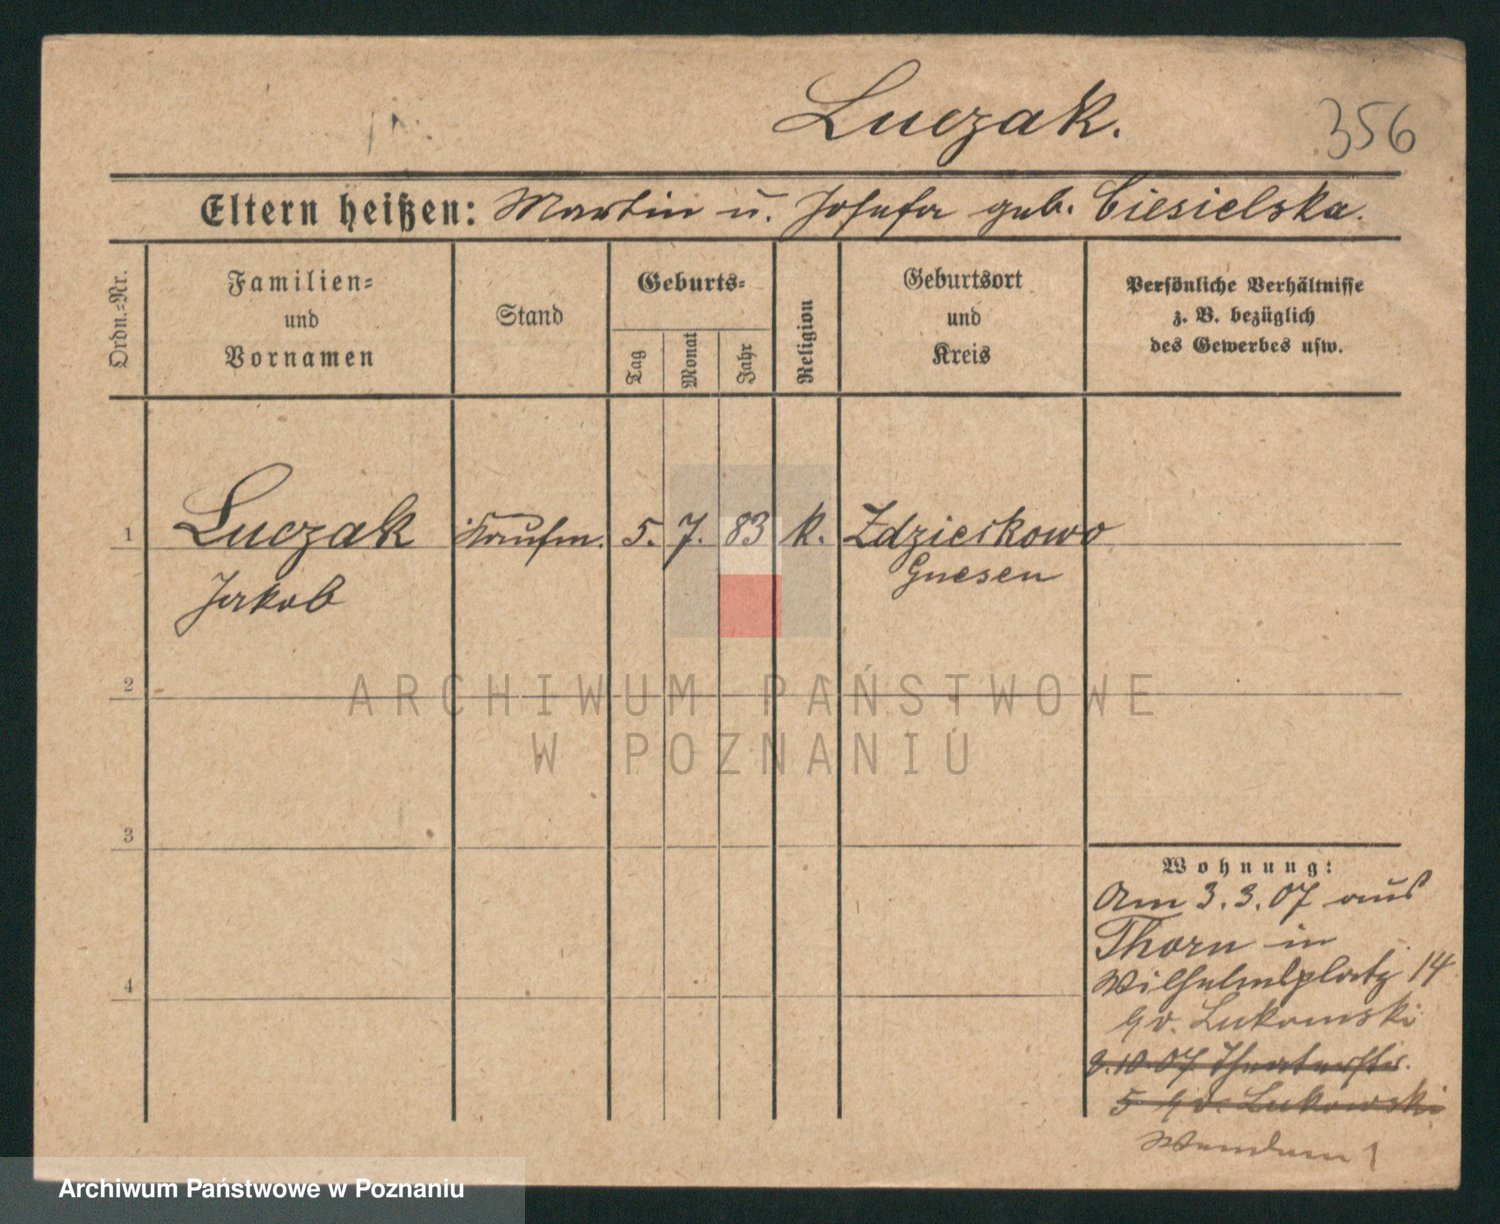 Luczak.
356
Eltern heißen: Martin u. Josefa geb. Ciesielska.
Ordn.=Nr.
Familien=
und
Vornamen
Stand
Geburts=
Tag
Monat
Jahr
Religion
Geburtsort
und
Kreis
Persönliche Verhältnisse
z. B. bezüglich
des Gewerbes usw.
1
Luczak Kaufm. 5. 7. 83 k. Zdzieskowo
Jakob
Gnesen
2
3
4
Wohnung:
Am 3.3.07 aus
Thorn in
Wilhelmsplatz 14
b/ v. Lukomski
3.10.07 Theaterstr.
5 b/ v. Lukowski
ARCHIWUM PAŃSTWOWE
W POZNANIU
Archiwum Państwowe w Poznaniu